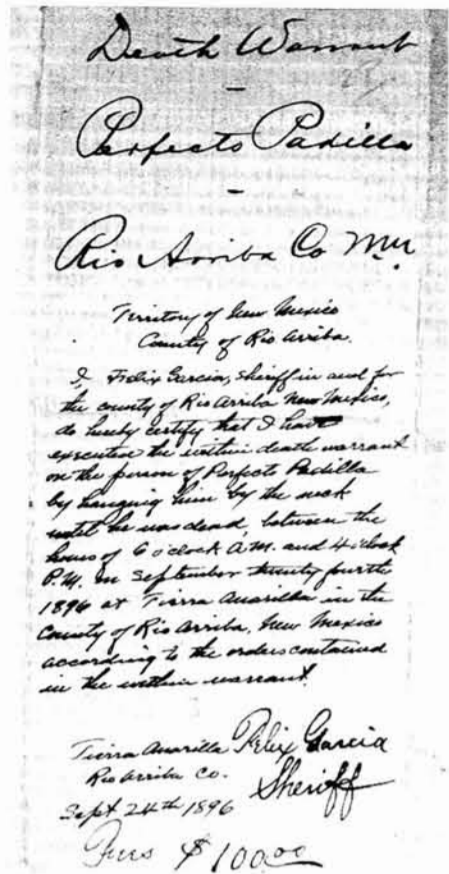 Death Warrant
-
Perfecto Padilla
-
Rio Arriba Co N.M.
Territory of New Mexico
County of Rio Arriba.
I, Felix Garcia, Sheriff in and for
the county of Rio Arriba New Mexico,
do hereby certify that I have
executed the within death warrant
on the person of Perfecto Padilla
by hanging him by the neck
until he was dead, between the
hours of 6 o'clock A.M. and 4 o'clock
P.M. on September twenty fourth
1896 at Tierra Amarilla in the
County of Rio Arriba, New Mexico
according to the orders contained
in the within warrant.
Tierra Amarilla Felix Garcia
Rio Arriba Co. Sheriff
Sept 24th 1896
Fees $100.00